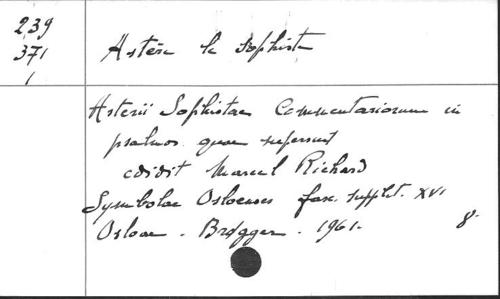 239
371
1
Astère le Sophiste
Asterii Sophistae Commentariorum in
psalmos quae supersunt
edidit Marcel Richard
Symbolae Osloenses fasc. supplet. XVI
Osloae - Brøgger - 1961.
8°